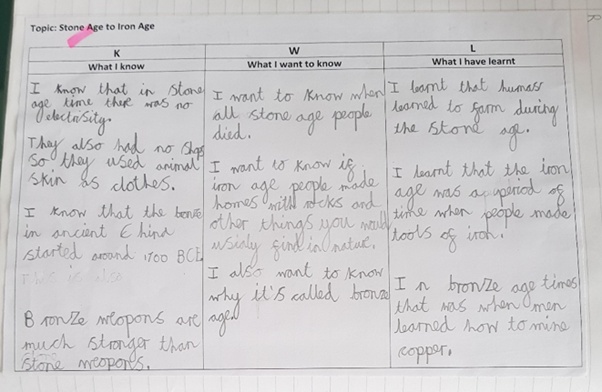 Topic: Stone Age to Iron Age
K
What I know
I know that in stone
age time there was no
electrisity.
They also had no shops
so they used animal
skin as clothes.
I know that the bonze
in ancient China
started around 1700 BCE
Bronze weopons are
much stronger than
stone weopons.
W
What I want to know
I want to know when
all stone age people
died.
I want to know if
iron age people made
homes with rocks and
other things you would
usialy find in natur.
I also want to know
why it's called bronze
age.
L
What I have learnt
I learnt that humans
learned to farm during
the stone age.
I learnt that the iron
age was a period of
time when people made
tools of iron.
In bronze age times
that was when men
learned how to mine
copper.